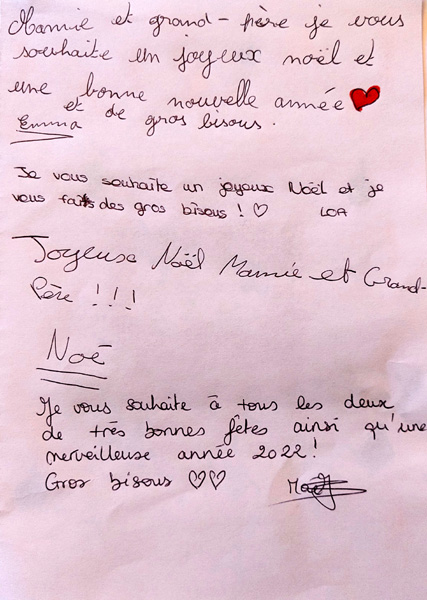 Mamie et grand-père je vous
souhaite un joyeux noël et
une bonne nouvelle année
et de gros bisous.
Emma
Je vous souhaite un joyeux Noël et je
vous fais des gros bisous !
LOA
Joyeuse Noël Mamie et Grand-
Père !!!
Noé
Je vous souhaite à tous les deux
de très bonnes fêtes ainsi qu'une
merveilleuse année 2022!
Gros bisous